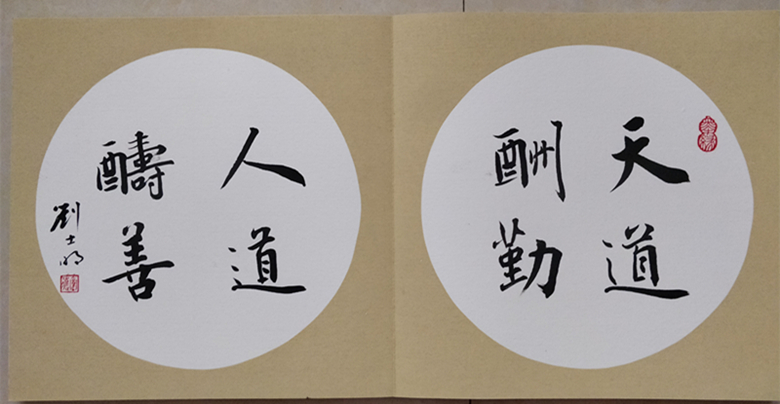 天道
酬勤
人道
醻善
劉士明